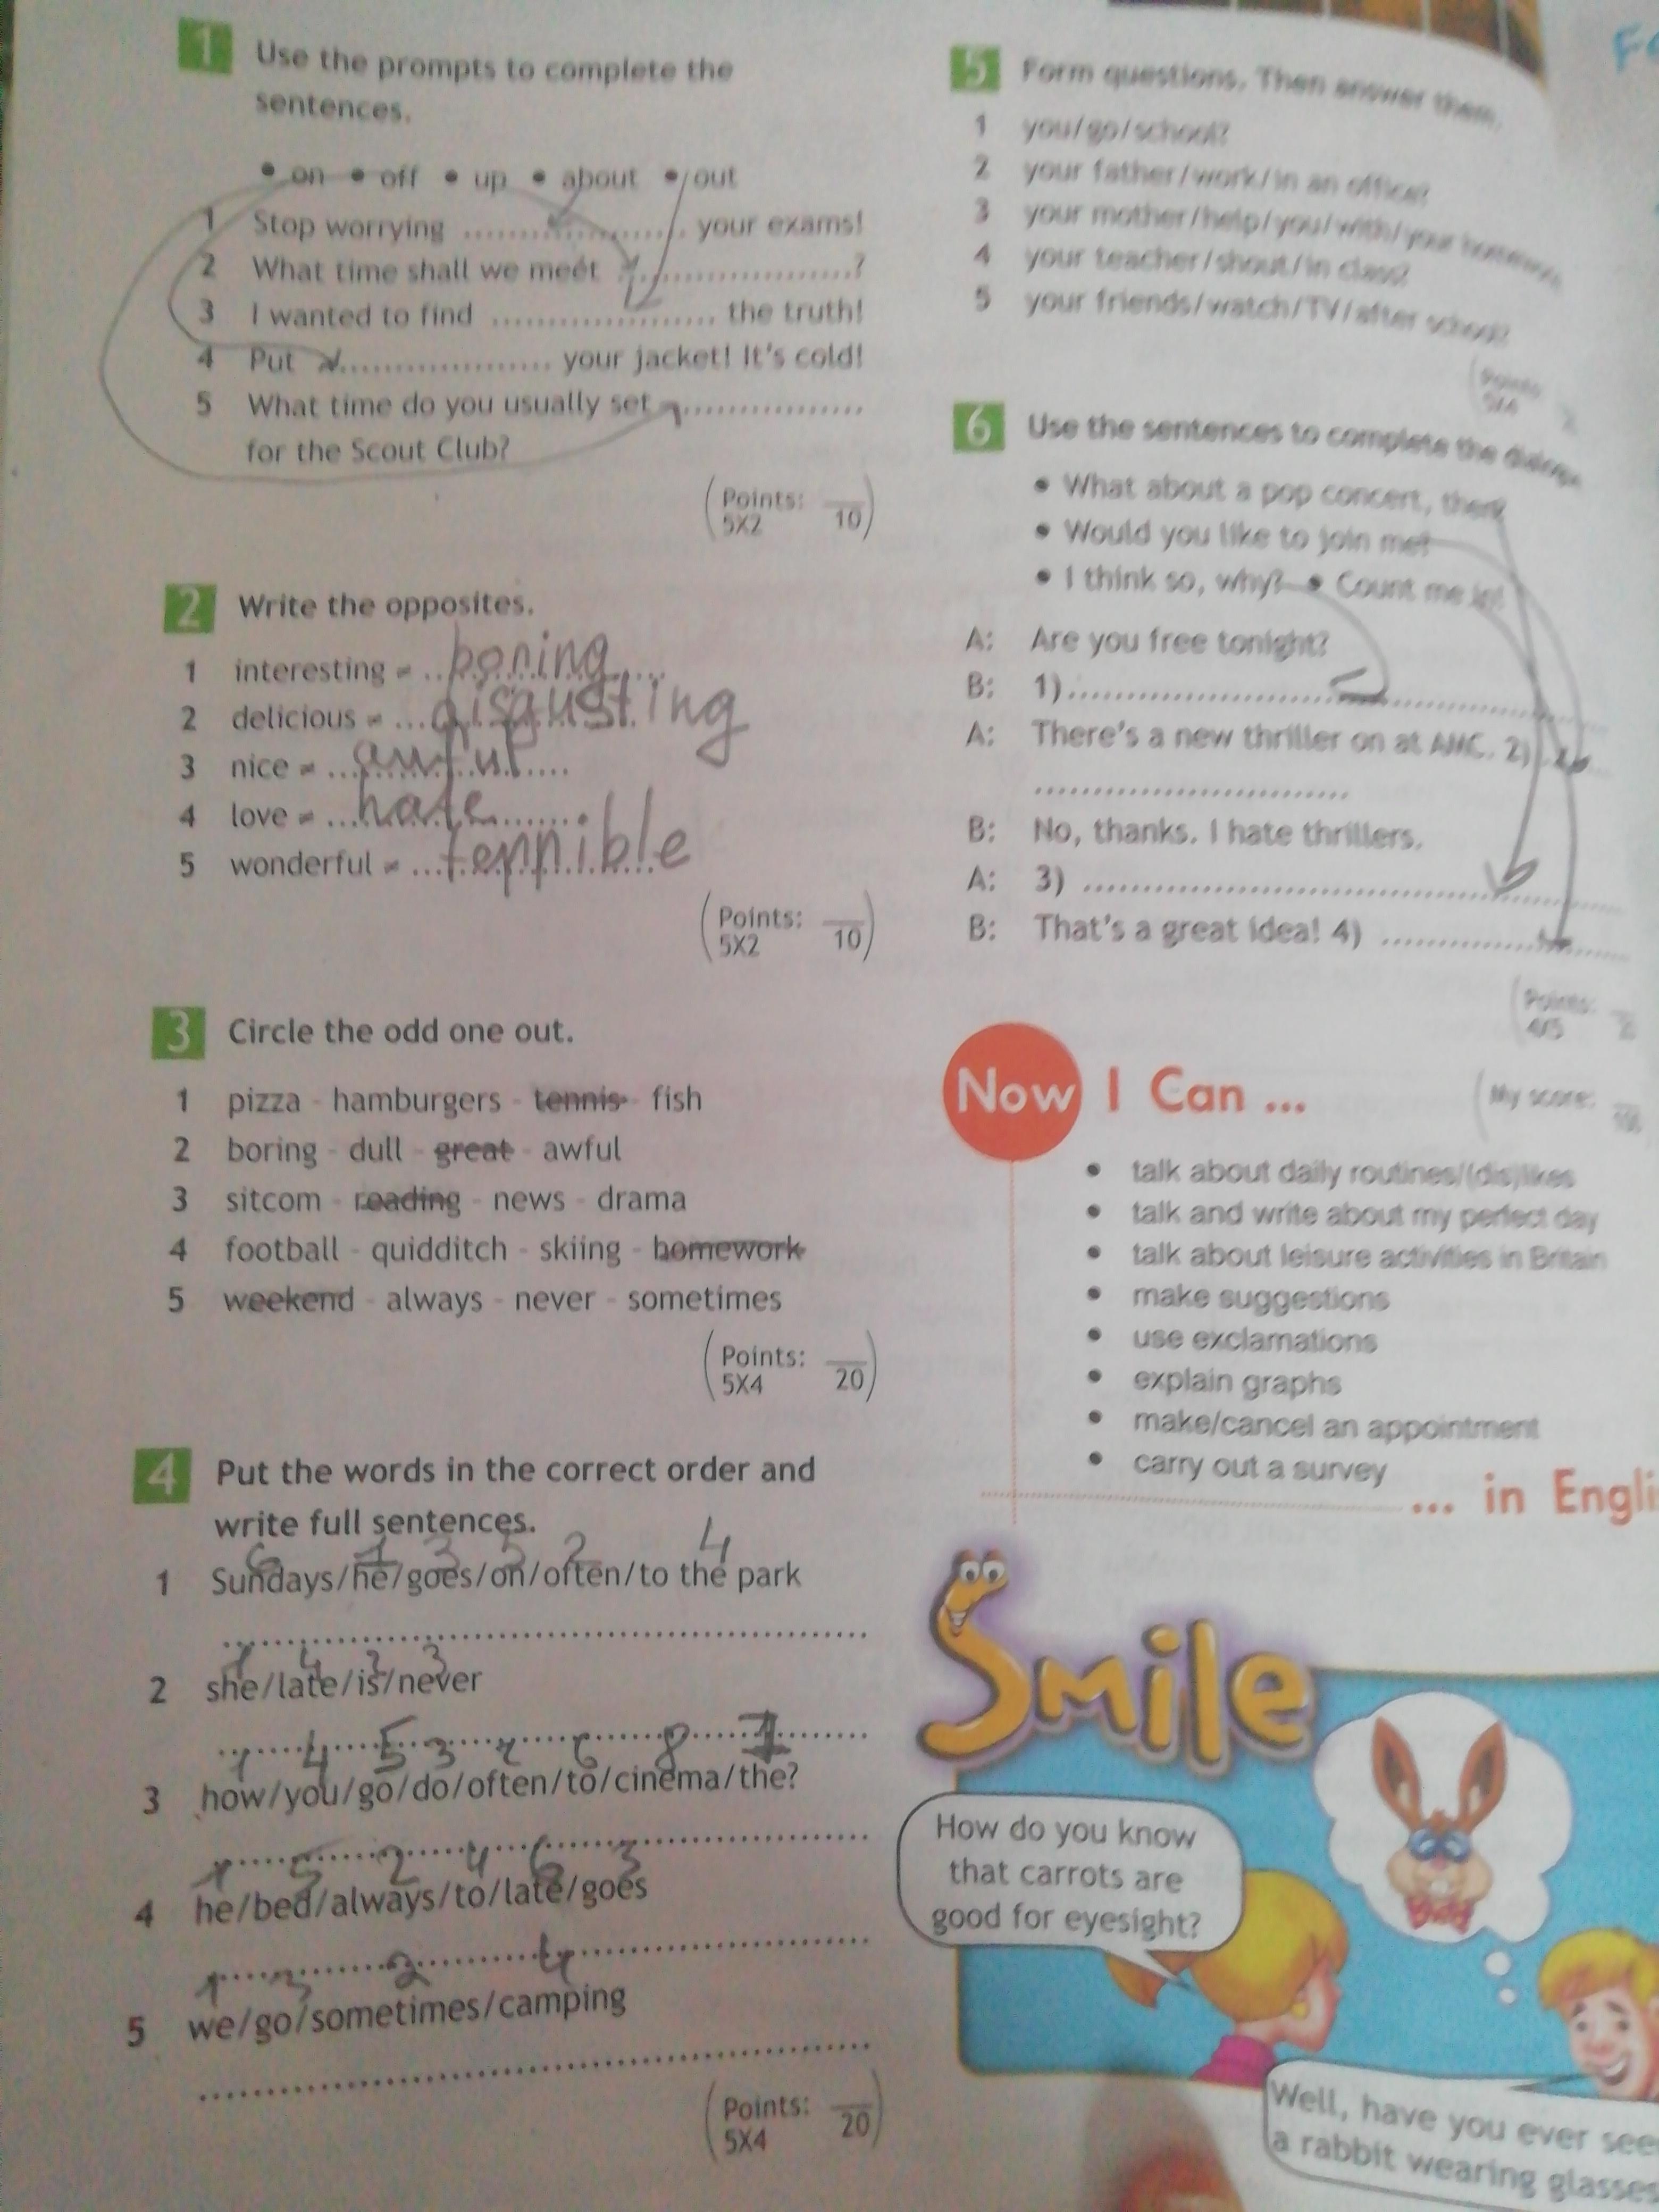 1 Use the prompts to complete the
sentences.
• on • off • up • about • out
1 Stop worrying ...................... your exams!
2 What time shall we meet ......................?
3 I wanted to find ...................... the truth!
4 Put ...................... your jacket! It's cold!
5 What time do you usually set ..................
for the Scout Club?
(Points: __
5X2 10)
2 Write the opposites.
1 interesting ≠ boring
2 delicious ≠ disgusting
3 nice ≠ awful
4 love ≠ hate
5 wonderful ≠ terrible
(Points: __
5X2 10)
3 Circle the odd one out.
1 pizza - hamburgers - tennis - fish
2 boring - dull - great - awful
3 sitcom - reading - news - drama
4 football - quidditch - skiing - homework
5 weekend - always - never - sometimes
(Points: __
5X4 20)
4 Put the words in the correct order and
write full sentences.
6 1 3 5 2 4
1 Sundays/he/goes/on/often/to the park
1 4 2 3
2 she/late/is/never
1 4 5 3 2 6 8 7
3 how/you/go/do/often/to/cinema/the?
1 5 2 4 6 3
4 he/bed/always/to/late/goes
1 3 2 4
5 we/go/sometimes/camping
(Points: __
5X4 20)
5 Form questions. Then answer them.
1 you/go/school?
2 your father/work/in an office?
3 your mother/help/you/with/your homework
4 your teacher/shout/in class?
5 your friends/watch/TV/after school?
(Points:
5X4
6 Use the sentences to complete the dialogue
• What about a pop concert, then?
• Would you like to join me?
• I think so, why? • Count me in!
A: Are you free tonight?
B: 1) ......................
A: There's a new thriller on at AMC. 2) ......
......................
B: No, thanks. I hate thrillers.
A: 3) ......................
B: That's a great idea! 4) ......................
(Points:
4X5
Now I Can ...
(My score:
100
• talk about daily routines/(dis)likes
• talk and write about my perfect day
• talk about leisure activities in Britain
• make suggestions
• use exclamations
• explain graphs
• make/cancel an appointment
• carry out a survey
... in Engli
Smile
How do you know
that carrots are
good for eyesight?
Well, have you ever see
a rabbit wearing glasses